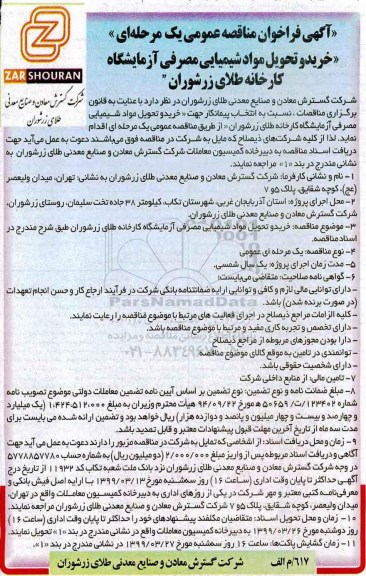 «آگهی فراخوان مناقصه عمومی یک مرحله‌ای»
«خرید و تحویل مواد شیمیایی مصرفی آزمایشگاه
کارخانه طلای زرشوران»
ZAR SHOURAN
شرکت گسترش معادن و صنایع معدنی
طلای زرشوران
شرکت گسترش معادن و صنایع معدنی طلای زرشوران در نظر دارد با عنایت به قانون
برگزاری مناقصات، نسبت به انتخاب پیمانکار جهت «خرید و تحویل مواد شیمیایی
مصرفی آزمایشگاه کارخانه طلای زرشوران» از طریق مناقصه عمومی یک مرحله ای اقدام
نماید. لذا از کلیه شرکت‌های ذیصلاح که مایل به شرکت در مناقصه فوق می‌باشند دعوت به عمل می‌آید جهت
دریافت اسناد مناقصه به دبیرخانه کمیسیون معاملات شرکت گسترش معادن و صنایع معدنی طلای زرشوران به
نشانی مندرج در بند «۱» مراجعه نمایند.
۱- نام و نشانی کارفرما: شرکت گسترش معادن و صنایع معدنی طلای زرشوران به نشانی: تهران، میدان ولیعصر
(عج)، کوچه شقایق، پلاک ۵ و ۷
۲- محل اجرای پروژه: استان آذربایجان غربی، شهرستان تکاب، کیلومتر ۳۸ جاده تخت سلیمان، روستای زرشوران،
شرکت گسترش معادن و صنایع معدنی طلای زرشوران.
۳- موضوع مناقصه: خرید و تحویل مواد شیمیایی مصرفی آزمایشگاه کارخانه طلای زرشوران طبق شرح مندرج در
اسناد مناقصه.
۴- نوع مناقصه: یک مرحله ای عمومی
۵- مدت زمان اجرای پروژه: یک سال شمسی.
۶- گواهی نامه صلاحیت: متقاضی می‌بایست:
- دارای توانایی مالی لازم و کافی و توانایی ارایه ضمانتنامه بانکی شرکت در فرآیند ارجاع کار و حسن انجام تعهدات
(در صورت برنده شدن) باشد.
- کلیه الزامات مراجع ذیصلاح در اجرای فعالیت های مرتبط با موضوع مناقصه را رعایت نمایند.
- دارای تخصص و تجربه کاری مفید و مرتبط با موضوع مناقصه باشد.
- دارا بودن مجوزهای مربوطه از مراجع ذیصلاح
- توانمندی در تامین به موقع کالای موضوع مناقصه
- دارای شخصیت حقوقی باشد.
۷- تامین مالی: از منابع داخلی شرکت
۸- مبلغ ضمانت نامه و نوع تضمین: نوع تضمین بر اساس آیین نامه تضمین معاملات دولتی موضوع تصویب نامه
شماره ۱۲۳۴۰۲/ت۵۰۶۵۹ ه مورخ ۹۴/۰۹/۲۲ هیأت محترم وزیران به مبلغ ۱،۴۲۴،۵۱۲،۰۰۰ (یک میلیارد
و چهارصد و بیست و چهار میلیون و پانصد و دوازده هزار) ریال خواهد بود و تضمین ارائه شده می بایست برای
مدت سه ماه از تاریخ آخرین مهلت قبول پیشنهادات معتبر و قابل تمدید باشد.
۹- زمان و محل دریافت اسناد: از اشخاصی که تمایل به شرکت در مناقصه مزبور را دارند دعوت به عمل می آید جهت
آگاهی و دریافت اسناد مربوطه پس از واریز مبلغ ۲/۰۰۰/۰۰۰ (دو میلیون ریال) به شماره حساب ۵۷۷۸۸۵۷۷۸۰
در وجه شرکت گسترش معادن و صنایع معدنی طلای زرشوران نزد بانک ملت شعبه تکاب کد ۱۱۹۳۳ از تاریخ درج
آگهی حداکثر تا پایان وقت اداری (ساعت ۱۶) روز سه‌شنبه مورخ ۱۳۹۹/۰۳/۱۳ با ارایه اصل فیش بانکی و
معرفی‌نامه کتبی معتبر و مهر شرکت در یکی از روزهای اداری به دبیرخانه کمیسیون معاملات واقع در تهران
میدان ولیعصر، کوچه شقایق، پلاک ۵ و ۷ شرکت گسترش معادن و صنایع معدنی طلای زرشوران مراجعه نمائید.
۱۰- زمان و محل تحویل اسناد: متقاضیان مکلفند پیشنهادهای خود را حداکثر تا پایان وقت اداری (ساعت ۱۶)
روز دوشنبه مورخ ۱۳۹۹/۰۳/۲۶ به دبیرخانه کمیسیون معاملات واقع در نشانی مندرج در بند «۱» تحویل نمایند.
۱۱- زمان گشایش پاکت‌ها: ساعت ۱۶ روز سه‌شنبه مورخ ۱۳۹۹/۰۳/۲۷ در نشانی مندرج در بند «۱».
۶۱۷/م الف
شرکت گسترش معادن و صنایع معدنی طلای زرشوران